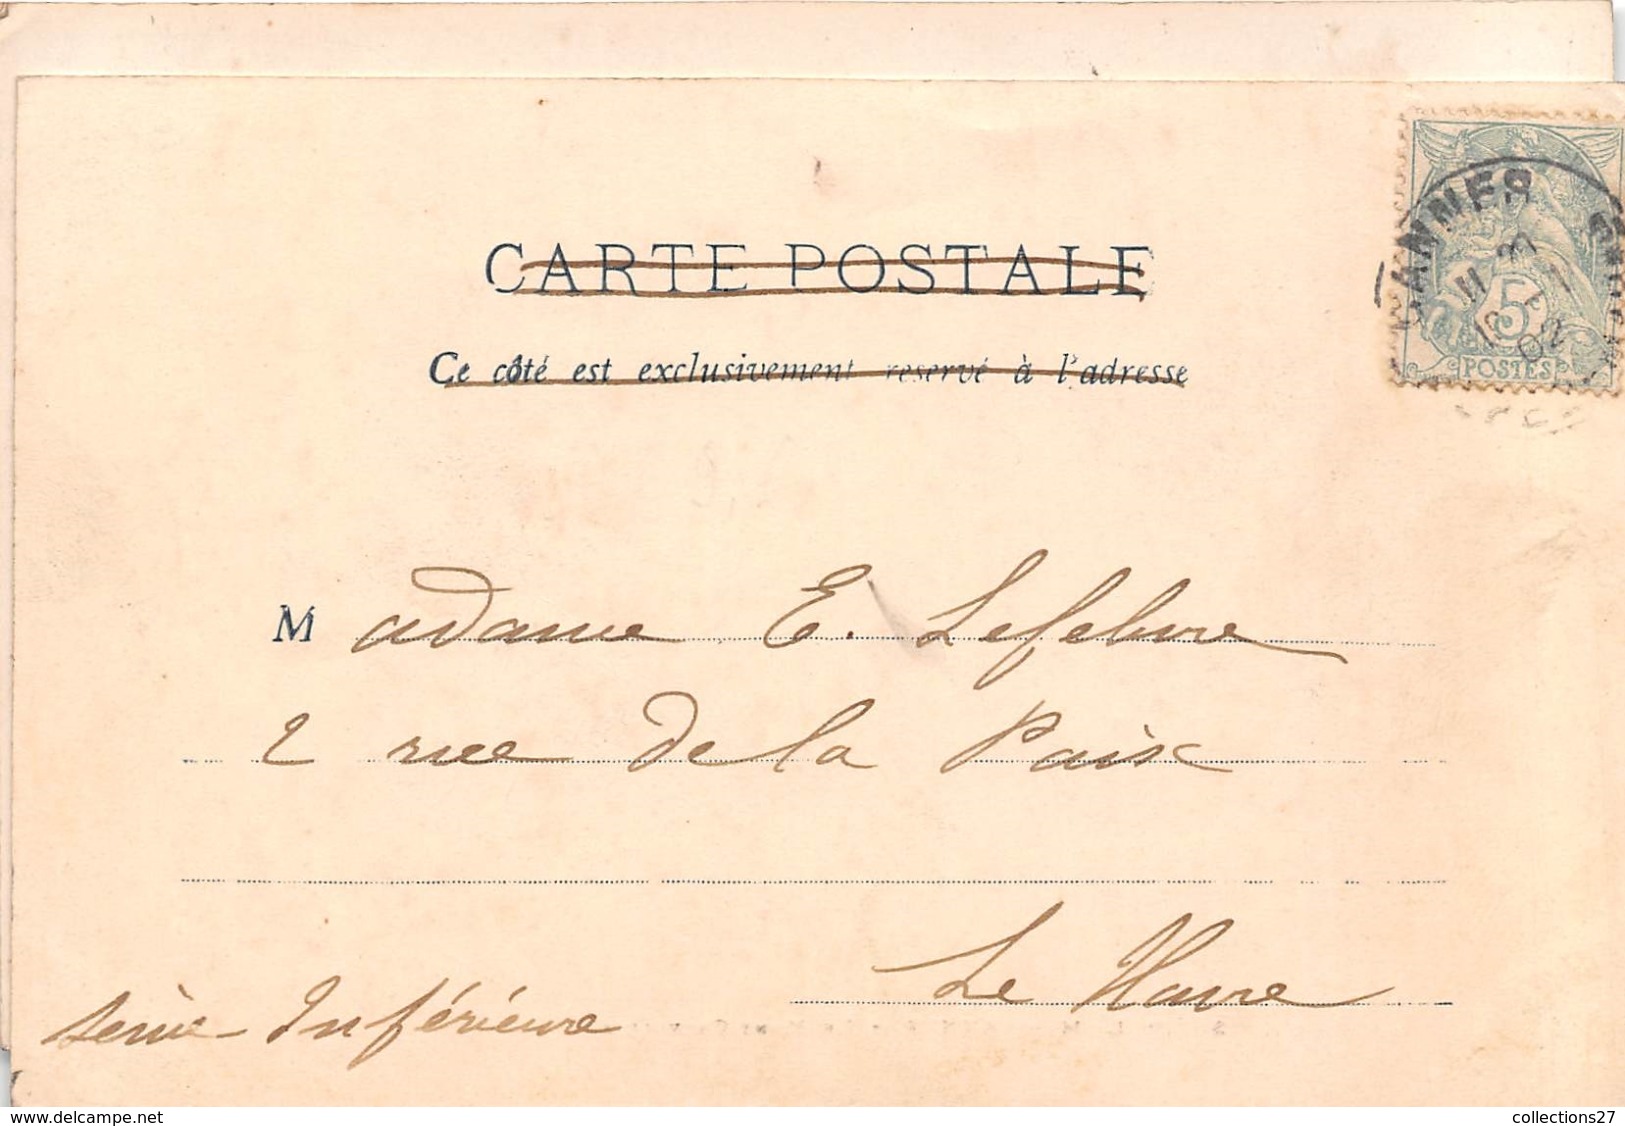 CARTE POSTALE
Ce côté est exclusivement reservé à l'adresse
CANNES
02
5
POSTES
Madame E. Lefebvre
2 rue de la Paix
Le Havre
Seine Inférieure
www.delcampe.net
collections27